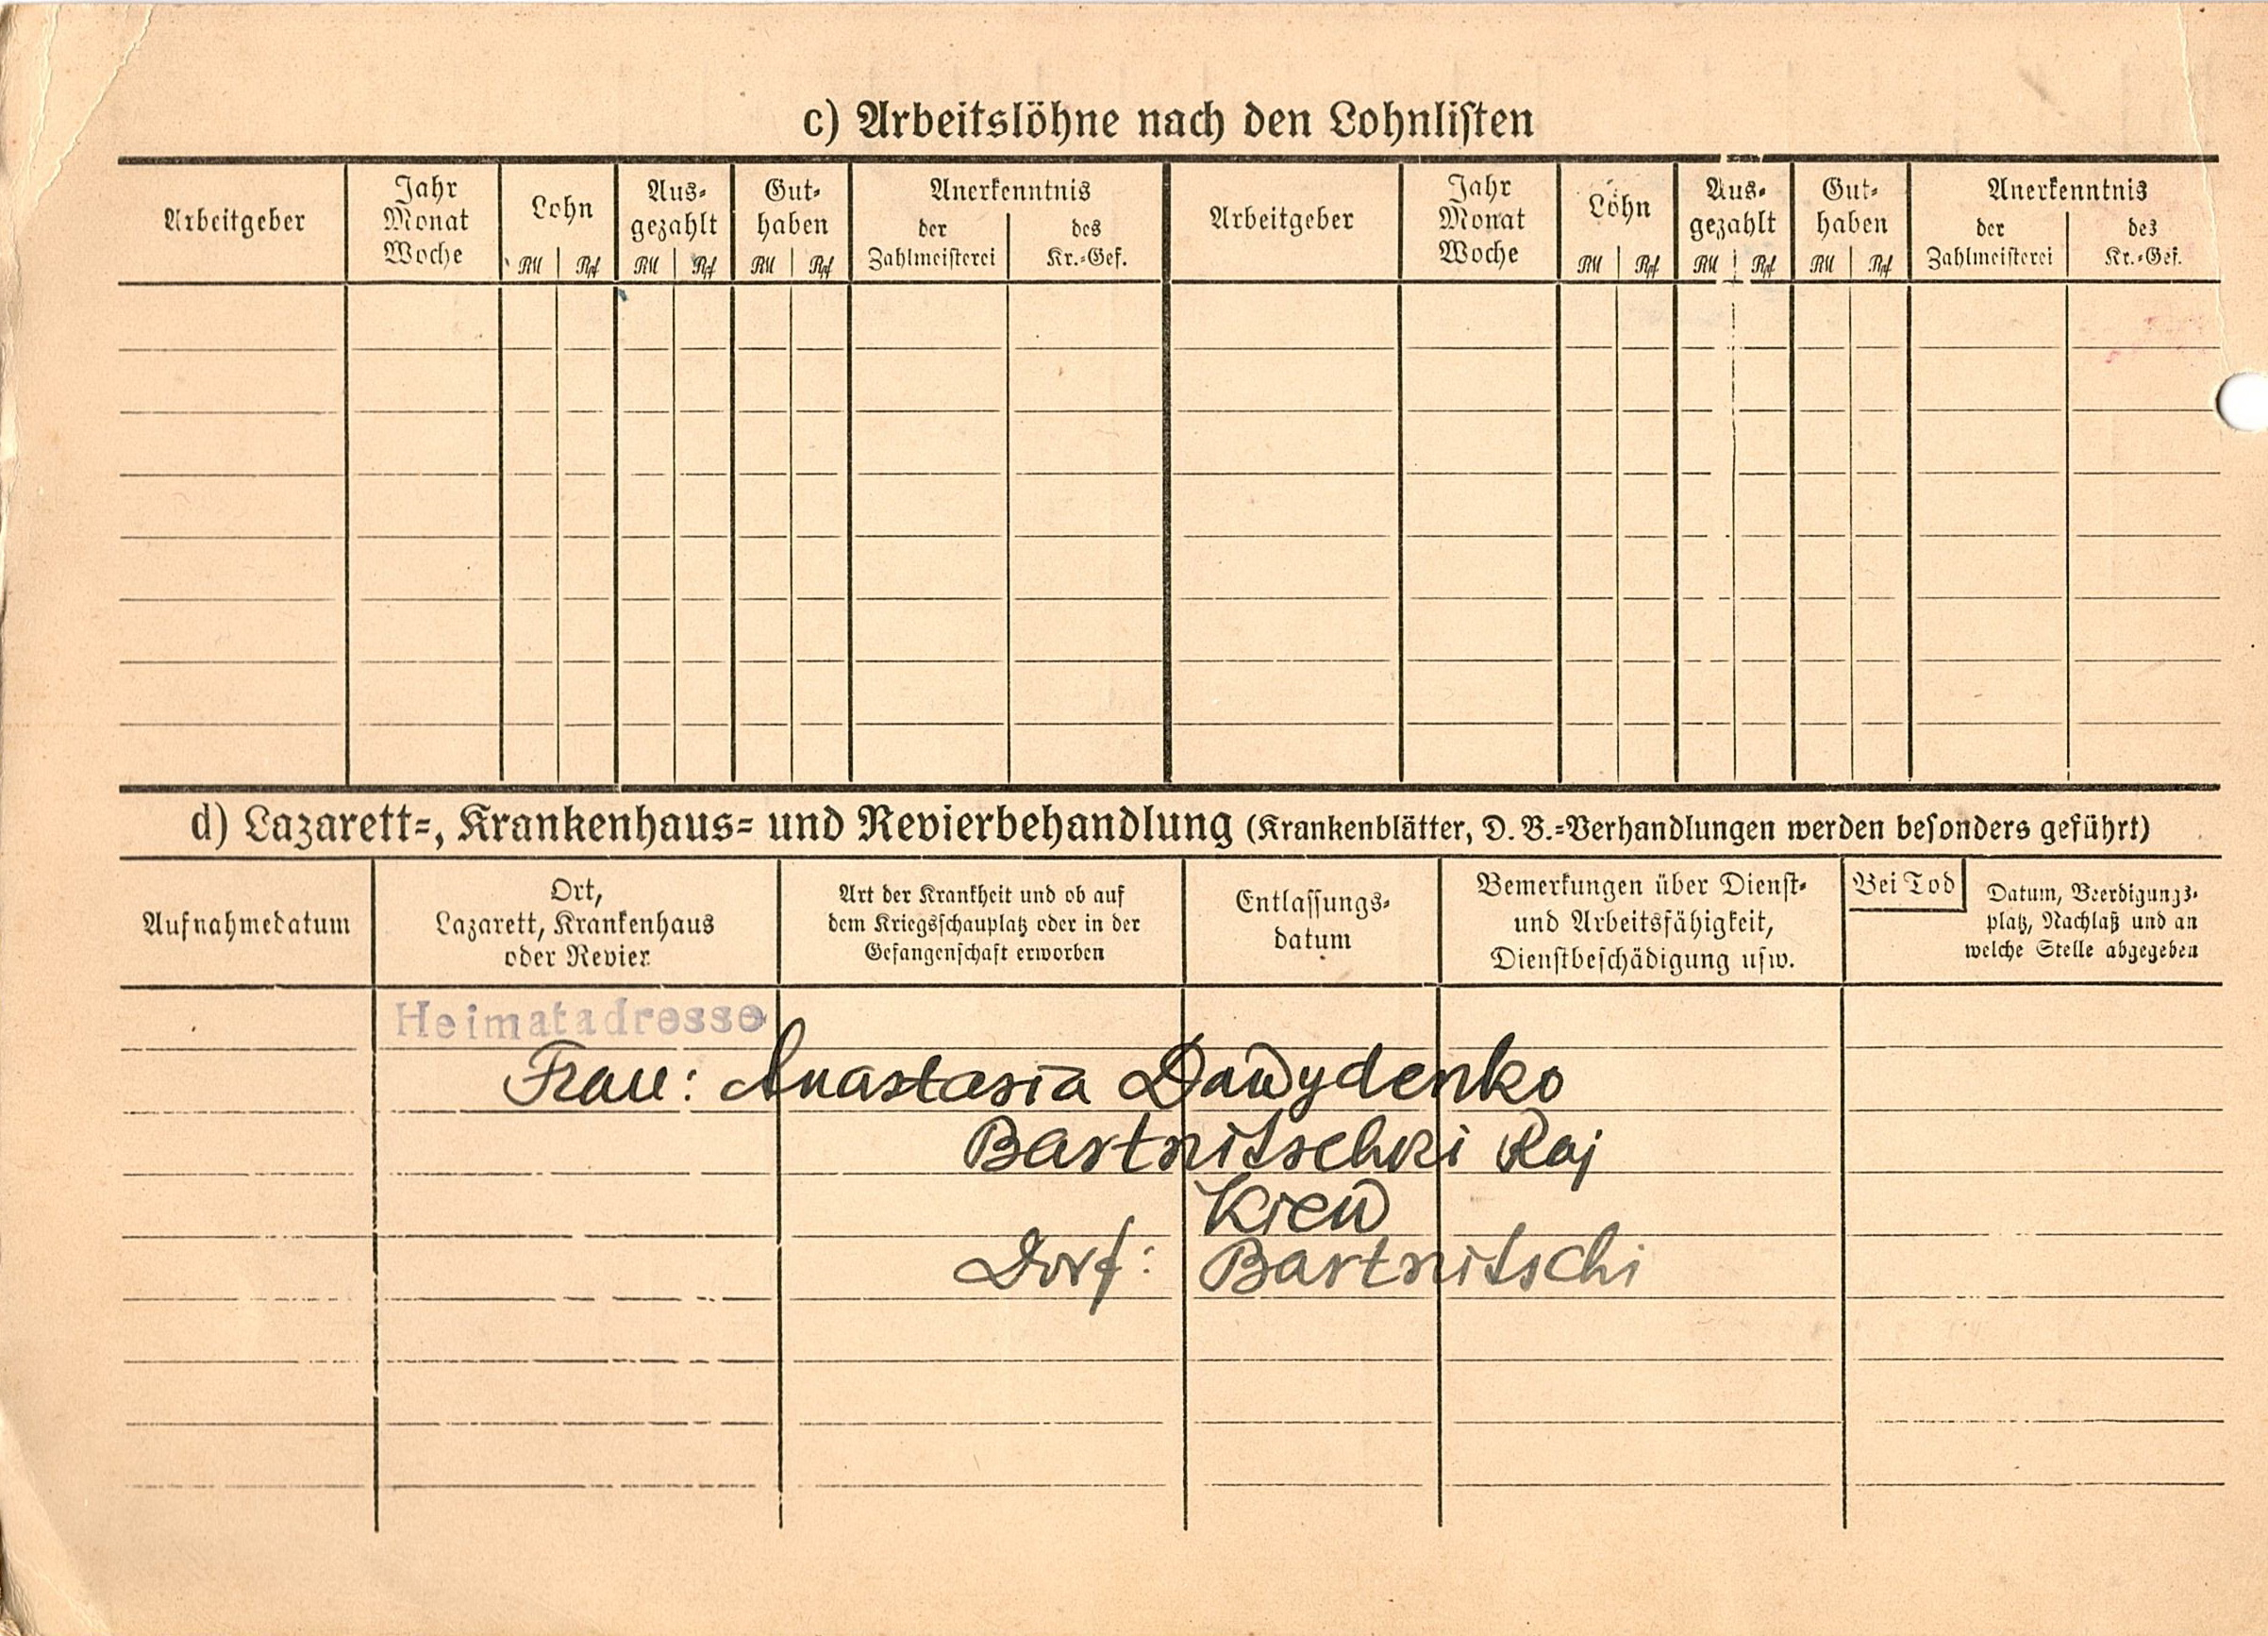 c) Arbeitslöhne nach den Lohnlisten
Arbeitgeber
Jahr
Monat
Woche
Lohn
RM Rpf
Aus-
gezahlt
RM Rpf
Gut-
haben
RM Rpf
Anerkenntnis
der
Zahlmeisterei
des
Kr.-Gef.
Arbeitgeber
Jahr
Monat
Woche
Lohn
RM Rpf
Aus-
gezahlt
RM Rpf
Gut-
haben
RM Rpf
Anerkenntnis
der
Zahlmeisterei
des
Kr.-Gef.
d) Lazarett-, Krankenhaus- und Revierbehandlung (Krankenblätter, D. B.-Verhandlungen werden besonders geführt)
Aufnahmedatum
Ort,
Lazarett, Krankenhaus
oder Revier
Art der Krankheit und ob auf
dem Kriegsschauplatz oder in der
Gefangenschaft erworben
Entlassungs-
datum
Bemerkungen über Dienst-
und Arbeitsfähigkeit,
Dienstbeschädigung usw.
Bei Tod
Datum, Beerdigungs-
platz, Nachlaß und an
welche Stelle abgegeben
Heimatadresse
Frau: Anastasia Dawydenko
Bartnitschki Raj
Kiew
Dorf: Bartnitschi